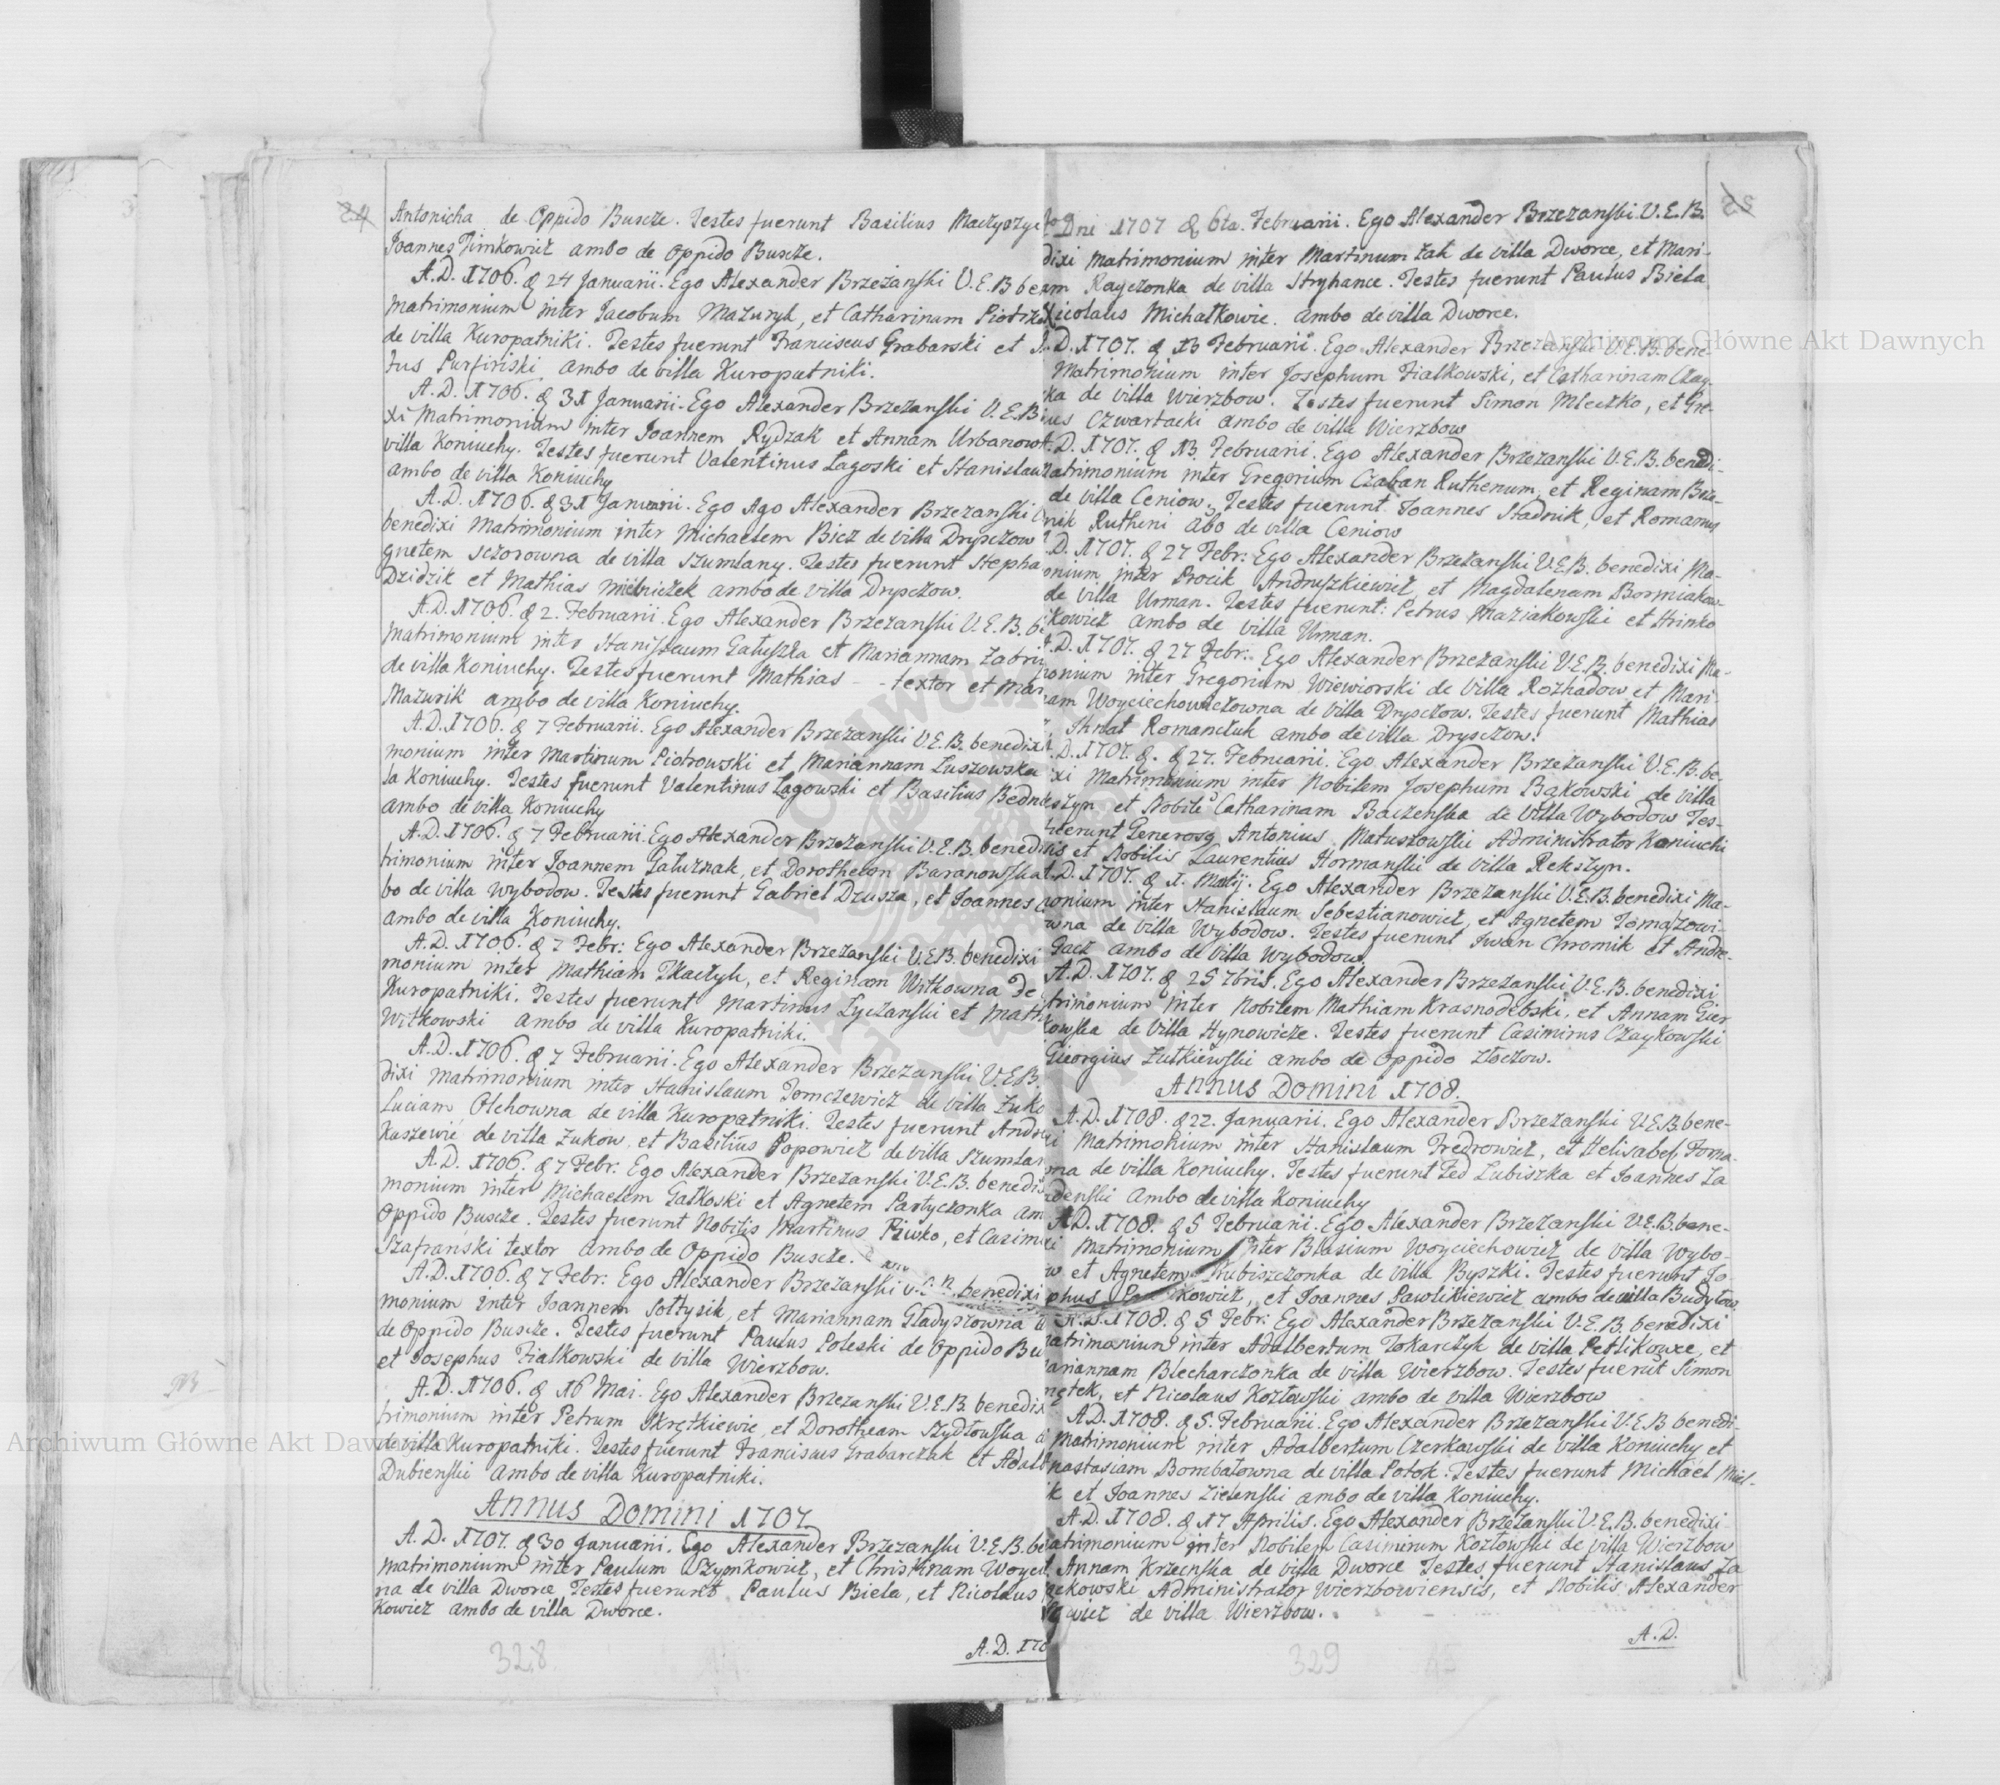 54
Antonicha de Oppido Buscze. Testes fuerunt Basilius
Joannes Timkowicz ambo de oppido Buscze.
A.D. 1706. & 24 Januarii. Ego Alexander Brzezanski V.E.B ben
Matrimonium inter Jacobum Mazuryk, et Catharinam
de villa Kuropatniki. Testes fuerunt Franciscus Grabarski et
tus Purfinski ambo de villa Kuropatniki.
A.D. 1706. & 31 Januarii. Ego Alexander Brzezanski V.E.B
xi Matrimonium inter Joannem Rydzak et Annam Urbanow
villa Koniuchy. Testes fuerunt Valentinus Lagoski et Stanislau
ambo de villa Koniuchy
A.D. 1706. & 31 Januarii. Ego Ago Alexander Brzezanski
benedixi Matrimonium inter Michaelem Bicz de villa Dryszczow
gnetem sczorowna de villa Szumlany. Testes fuerunt Stepha
Dzidzik et Mathias Mielniczek ambo de villa Dryszczow.
A.D. 1706. & 2. Februarii. Ego Alexander Brzezanski V.E.B. be
Matrimonium inter Stanislaum Galuszka et Mariannam Zabri
de villa Koniuchy. Testes fuerunt Mathias - - textor et Mar
Mazurik ambo de villa Koniuchy.
A.D. 1706. & 7 Februarii. Ego Alexander Brzezanski V.E.B. benedixi
monium inter Martinum Piotrowski et Mariannam Luszowska
la Koniuchy. Testes fuerunt Valentinus Lagowski et Basilius Bedna
ambo de villa Koniuchy
A.D. 1706. & 7 Februarii. Ego Alexander Brzezanski V.E.B. benedi
trimonium inter Joannem Galuznak, et Dorotheam Baranowska
bo de villa Wybodow. Testes fuerunt Gabriel Dzusza, et Joannes
ambo de villa Koniuchy.
A.D. 1706. & 7 Febr: Ego Alexander Brzezanski V.E.B. benedixi
monium inter Mathiam Tkaczyk, et Reginam Witkowna de
Kuropatniki. Testes fuerunt Martinus Lyczanski et Math
Witkowski ambo de villa Kuropatniki.
A.D. 1706. & 7 Februarii. Ego Alexander Brzezanski V.E.B.
dixi Matrimonium inter Stanislaum Tomczewicz de villa Zuko
Luciam Olchowna de villa Kuropatniki. Testes fuerunt Andre
Kaszewic de villa Zukow, et Basilius Popowicz de villa Szumlan
A.D. 1706. & 7 Febr: Ego Alexander Brzezanski V.E.B. benedix
monium inter Michaelem Galkoski et Agnetem Partyczonka am
Oppido Buscze. Testes fuerunt Nobilis Martinus Piwko, et Casim
Szafranski textor ambo de Oppido Buscze.
A.D. 1706. & 7 Febr: Ego Alexander Brzezanski benedixi
monium inter Joannem Soltysik, et Mariannam Gladyszowna
de Oppido Buscze. Testes fuerunt Paulus Poleski de Oppido Bu
et Josephus Fialkowski de villa Wierzbow.
A.D. 1706. & 16 Mai. Ego Alexander Brzezanski V.E.B. benedix
trimonium inter Petrum Skrętkiewic, et Dorotheam Szydlowska
de villa Kuropatniki. Testes fuerunt Franciscus Grabarczak et Adalb
Dubienski ambo de villa Kuropatniki.
Annus Domini 1707
A.D. 1707. & 30 Januarii. Ego Alexander Brzezanski V.E.B. be
matrimonium inter Paulum Szymkowicz, et Christinam Woyci
na de villa Dworce Testes fuerunt Paulus Biela, et Nicolaus
Kowicz ambo de villa Dworce.
A.D. 170
328
55
Dni 1707 & 6ta. Februarii. Ego Alexander Brzezanski V.E.B.
dixi Matrimonium inter Martinum Zak de villa Dworce, et Mari-
m Rayczonka de villa Stryhance. Testes fuerunt Paulus Biela
Nicolaus Michalkowic. ambo de villa Dworce.
A.D. 1707. & 13 Februarii. Ego Alexander Brzezanski V.E.B. bene-
Matrimonium inter Josephum Fialkowski, et Catharinam Czay-
ka de villa Wierzbow. Testes fuerunt Simon Mleczko, et Gre-
ius Czwartacki ambo de villa Wierzbow
.D. 1707. & 13. Februarii. Ego Alexander Brzezanski V.E.B. benedi-
atrimonium inter Gregorium Czaban Ruthenum, et Reginam Brze-
de villa Ceniow. Testes fuerunt. Joannes Stadnik, et Romanus
nik Rutheni abo de villa Ceniow
.D. 1707. & 27 Febr: Ego Alexander Brzezanski V.E.B. benedixi Ma-
onium inter Procik Andruszkiewicz, et Magdalenam Bormiakow-
de villa Urman. Testes fuerunt: Petrus Maziakowski et Hrinko
kowicz ambo de villa Urman.
.D. 1707. & 27 Febr:. Ego Alexander Brzezanski V.E.B. benedixi Ma-
onium inter Gregorium Wiewiorski de Villa Rozhadow et Mari-
am Woyciechowczowna de Villa Dryszczow. Testes fuerunt Mathias
Ihnat Romanczuk ambo de villa Dryszczow.
.D. 1707. &. & 27. Februarii. Ego Alexander Brzezanski V.E.B. be-
xi Matrimonium inter Nobilem Josephum Bąkowski de villa
szyn et Nobile Catharinam Baczenska de villa Wybodow Tes-
fuerunt Generosq Antonius Matuszowski Administrator Koniuchi
sis et Nobilis Laurentius Hormanski de villa Rekszyn.
.D. 1707. & 1. Martij. Ego Alexander Brzezanski V.E.B. benedixi Ma-
onium inter Stanislaum Sebestianowicz, et Agnetem Tomaszowi-
wna de villa Wybodow. Testes fuerunt Iwan Chromik et Andre-
Gacz ambo de villa Wybodow.
A.D. 1707. & 25 7bris. Ego Alexander Brzezanski V.E.B. benedixi
trimonium inter Nobilem Mathiam Krasnodębski, et Annam Gier
kowska de villa Hynowicze. Testes fuerunt Casimirus Czaykowski
Georgius Zulkiewski ambo de Oppido Zloczow.
Annus Domini 1708.
A.D. 1708. & 22. Januarii. Ego Alexander Brzezanski V.E.B. bene-
i Matrimonium inter Stanislaum Fredrowicz, et Helisabet Forna-
na de villa Koniuchy. Testes fuerunt Fed Lubiszka et Joannes Za
denski ambo de villa Koniuchy
A.D. 1708. & 5 Februarii. Ego Alexander Brzezanski V.E.B. bene-
i Matrimonium inter Blasium Woyciechowicz de villa Wybo-
w et Agnetem Kubiszczonka de villa Byszki. Testes fuerunt Jo-
phus kowicz, et Joannes Pawlikiewicz ambo de villa Budylow
A.D. 1708. & 5 Febr: Ego Alexander Brzezanski V.E.B. benedixi
atrimonium inter Adalbertum Tokarczyk de villa Petlikowce, et
ariannam Blecharczonka de villa Wierzbow. Testes fuerut Simon
ntek, et Nicolaus Kozlowski ambo de villa Wierzbow
A.D. 1708. & 5. Februarii. Ego Alexander Brzezanski V.E.B. benedi-
Matrimonium inter Adalbertum Czerkawski de villa Koniuchy et
nastasiam Bombalowna de villa Potok. Testes fuerunt Michael Miel-
k et Joannes Zielenski ambo de villa Koniuchy.
A.D. 1708. & 17 Aprilis. Ego Alexander Brzezanski V.E.B. benedixi
atrimonium inter Nobilem Casimirum Kozlowski de villa Wierzbow
Annam Krzecnska de villa Dworce Testes fuerunt Stanislaus Za
ękowski Administrator Wierzbowiensis, et Nobilis Alexander
wicz de villa Wierzbow.
A.D.
329
Archiwum Główne Akt Dawnych
Archiwum Główne Akt Dawnych